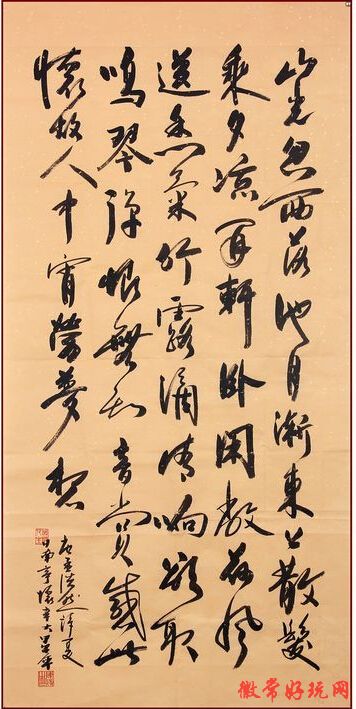 山光忽西落池月漸東上散髮
乘夕凉開軒卧閑敞荷風
送香氣竹露滴清响欲取
鳴琴彈恨無知音賞感此
懷故人中宵勞夢想
孟浩然詩夏
日南亭懷辛大
徽常好玩网